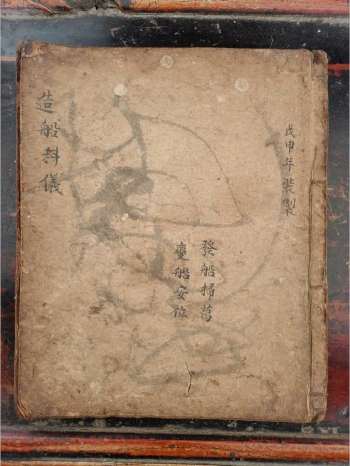 戊申年裝製
發船掃
船安
造船科儀